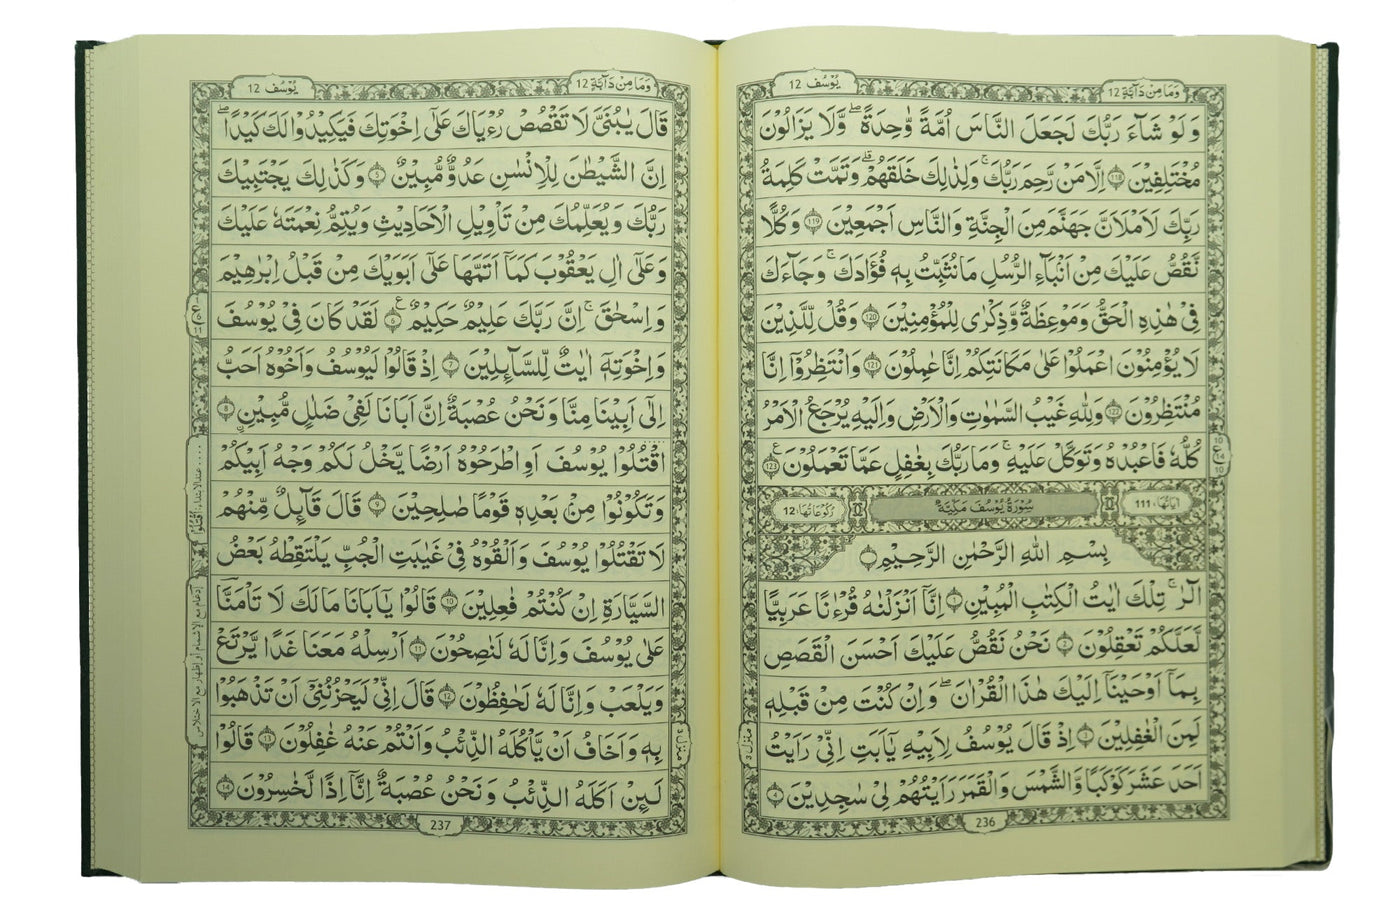 وَمَا مِنْ دَآبَّةٍ 12
يُوْسُف 12
وَلَوْ شَآءَ رَبُّكَ لَجَعَلَ النَّاسَ اُمَّةً وَّاحِدَةً ۖ وَّلَا يَزَالُوْنَ
مُخْتَلِفِيْنَ 118 اِلَّا مَنْ رَّحِمَ رَبُّكَ ۚ وَلِذٰلِكَ خَلَقَهُمْ ۗ وَتَمَّتْ كَلِمَةُ
رَبِّكَ لَاَمْلَاَنَّ جَهَنَّمَ مِنَ الْجِنَّةِ وَالنَّاسِ اَجْمَعِيْنَ 119 وَكُلًّا
نَّقُصُّ عَلَيْكَ مِنْ اَنْبَآءِ الرُّسُلِ مَا نُثَبِّتُ بِهٖ فُؤَادَكَ ۚ وَجَآءَكَ
فِيْ هٰذِهِ الْحَقُّ وَمَوْعِظَةٌ وَّذِكْرٰى لِلْمُؤْمِنِيْنَ 120 وَقُلْ لِّلَّذِيْنَ
لَا يُؤْمِنُوْنَ اعْمَلُوْا عَلٰى مَكَانَتِكُمْ اِنَّا عٰمِلُوْنَ 121 وَانْتَظِرُوْا اِنَّا
مُنْتَظِرُوْنَ 122 وَلِلّٰهِ غَيْبُ السَّمٰوٰتِ وَالْاَرْضِ وَاِلَيْهِ يُرْجَعُ الْاَمْرُ
كُلُّهٗ فَاعْبُدْهُ وَتَوَكَّلْ عَلَيْهِ ۚ وَمَا رَبُّكَ بِغٰفِلٍ عَمَّا تَعْمَلُوْنَ 123
اٰيَاتُهَا، 111 سُوْرَةُ يُوْسُفَ مَكِّيَّةٌ رُكُوْعَاتُهَا، 12
بِسْمِ اللّٰهِ الرَّحْمٰنِ الرَّحِيْمِ
الٓرٰ ۚ تِلْكَ اٰيٰتُ الْكِتٰبِ الْمُبِيْنِ 1 اِنَّا اَنْزَلْنٰهُ قُرْءٰنًا عَرَبِيًّا
لَّعَلَّكُمْ تَعْقِلُوْنَ 2 نَحْنُ نَقُصُّ عَلَيْكَ اَحْسَنَ الْقَصَصِ
بِمَا اَوْحَيْنَا اِلَيْكَ هٰذَا الْقُرْاٰنَ ۖ وَاِنْ كُنْتَ مِنْ قَبْلِهٖ
لَمِنَ الْغٰفِلِيْنَ 3 اِذْ قَالَ يُوْسُفُ لِاَبِيْهِ يٰٓاَبَتِ اِنِّيْ رَاَيْتُ
اَحَدَ عَشَرَ كَوْكَبًا وَّالشَّمْسَ وَالْقَمَرَ رَاَيْتُهُمْ لِيْ سٰجِدِيْنَ 4
منزل 3
236
وَمَا مِنْ دَآبَّةٍ 12
يُوْسُف 12
قَالَ يٰبُنَيَّ لَا تَقْصُصْ رُءْيَاكَ عَلٰى اِخْوَتِكَ فَيَكِيْدُوْا لَكَ كَيْدًا ۖ
اِنَّ الشَّيْطٰنَ لِلْاِنْسٰنِ عَدُوٌّ مُّبِيْنٌ 5 وَكَذٰلِكَ يَجْتَبِيْكَ
رَبُّكَ وَيُعَلِّمُكَ مِنْ تَاْوِيْلِ الْاَحَادِيْثِ وَيُتِمُّ نِعْمَتَهٗ عَلَيْكَ
وَعَلٰى اٰلِ يَعْقُوْبَ كَمَا اَتَمَّهَا عَلٰى اَبَوَيْكَ مِنْ قَبْلُ اِبْرٰهِيْمَ
وَاِسْحٰقَ ۚ اِنَّ رَبَّكَ عَلِيْمٌ حَكِيْمٌ 6 لَقَدْ كَانَ فِيْ يُوْسُفَ
وَاِخْوَتِهٖ اٰيٰتٌ لِّلسَّآئِلِيْنَ 7 اِذْ قَالُوْا لَيُوْسُفُ وَاَخُوْهُ اَحَبُّ
اِلٰى اَبِيْنَا مِنَّا وَنَحْنُ عُصْبَةٌ اِنَّ اَبَانَا لَفِيْ ضَلٰلٍ مُّبِيْنٍ 8
اقْتُلُوْا يُوْسُفَ اَوِ اطْرَحُوْهُ اَرْضًا يَّخْلُ لَكُمْ وَجْهُ اَبِيْكُمْ
وَتَكُوْنُوْا مِنْ بَعْدِهٖ قَوْمًا صٰلِحِيْنَ 9 قَالَ قَآئِلٌ مِّنْهُمْ
لَا تَقْتُلُوْا يُوْسُفَ وَاَلْقُوْهُ فِيْ غَيٰبَتِ الْجُبِّ يَلْتَقِطْهُ بَعْضُ
السَّيَّارَةِ اِنْ كُنْتُمْ فٰعِلِيْنَ 10 قَالُوْا يٰٓاَبَانَا مَالَكَ لَا تَاْمَنَّا
عَلٰى يُوْسُفَ وَاِنَّا لَهٗ لَنٰصِحُوْنَ 11 اَرْسِلْهُ مَعَنَا غَدًا يَّرْتَعْ
وَيَلْعَبْ وَاِنَّا لَهٗ لَحٰفِظُوْنَ 12 قَالَ اِنِّيْ لَيَحْزُنُنِيْ اَنْ تَذْهَبُوْا
بِهٖ وَاَخَافُ اَنْ يَّاْكُلَهُ الذِّئْبُ وَاَنْتُمْ عَنْهُ غٰفِلُوْنَ 13 قَالُوْا
لَئِنْ اَكَلَهُ الذِّئْبُ وَنَحْنُ عُصْبَةٌ اِنَّا اِذًا لَّخٰسِرُوْنَ 14
منزل 3
237